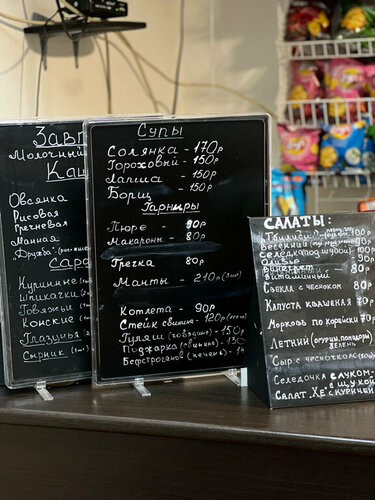 Молочный
Овсянка
Рисовая
Гречневая
Манная
Дружба
Куринные
Шпикачки
Говяжьи
Конские
Глазунья
Сырник
Супы
Солянка - 170р
Гороховый - 150р
Лапша - 150р
Борщ - 150р
Гарниры
Пюре - 90р
Макароны - 80р
Гречка 80р
Манты - 210р
Котлета - 90р
Стейк свинина - 120р
Гуляш (говядина) - 150р
Поджарка (свинина) - 130
Бефстроганов (печень) - 14
САЛАТЫ:
100р
Весенний 90р
Селедка под шубой 100р
Оливье 90р
Винегрет 80р
Витаминный
Свекла с чесноком 80р
Капуста квашеная 70р
Морковь по корейски 70р
Летний (огурцы, помидоры
зелень
Сыр с чесноком
Селедочка с луком
с щукой
Салат "Хе" с курицей
Lay's